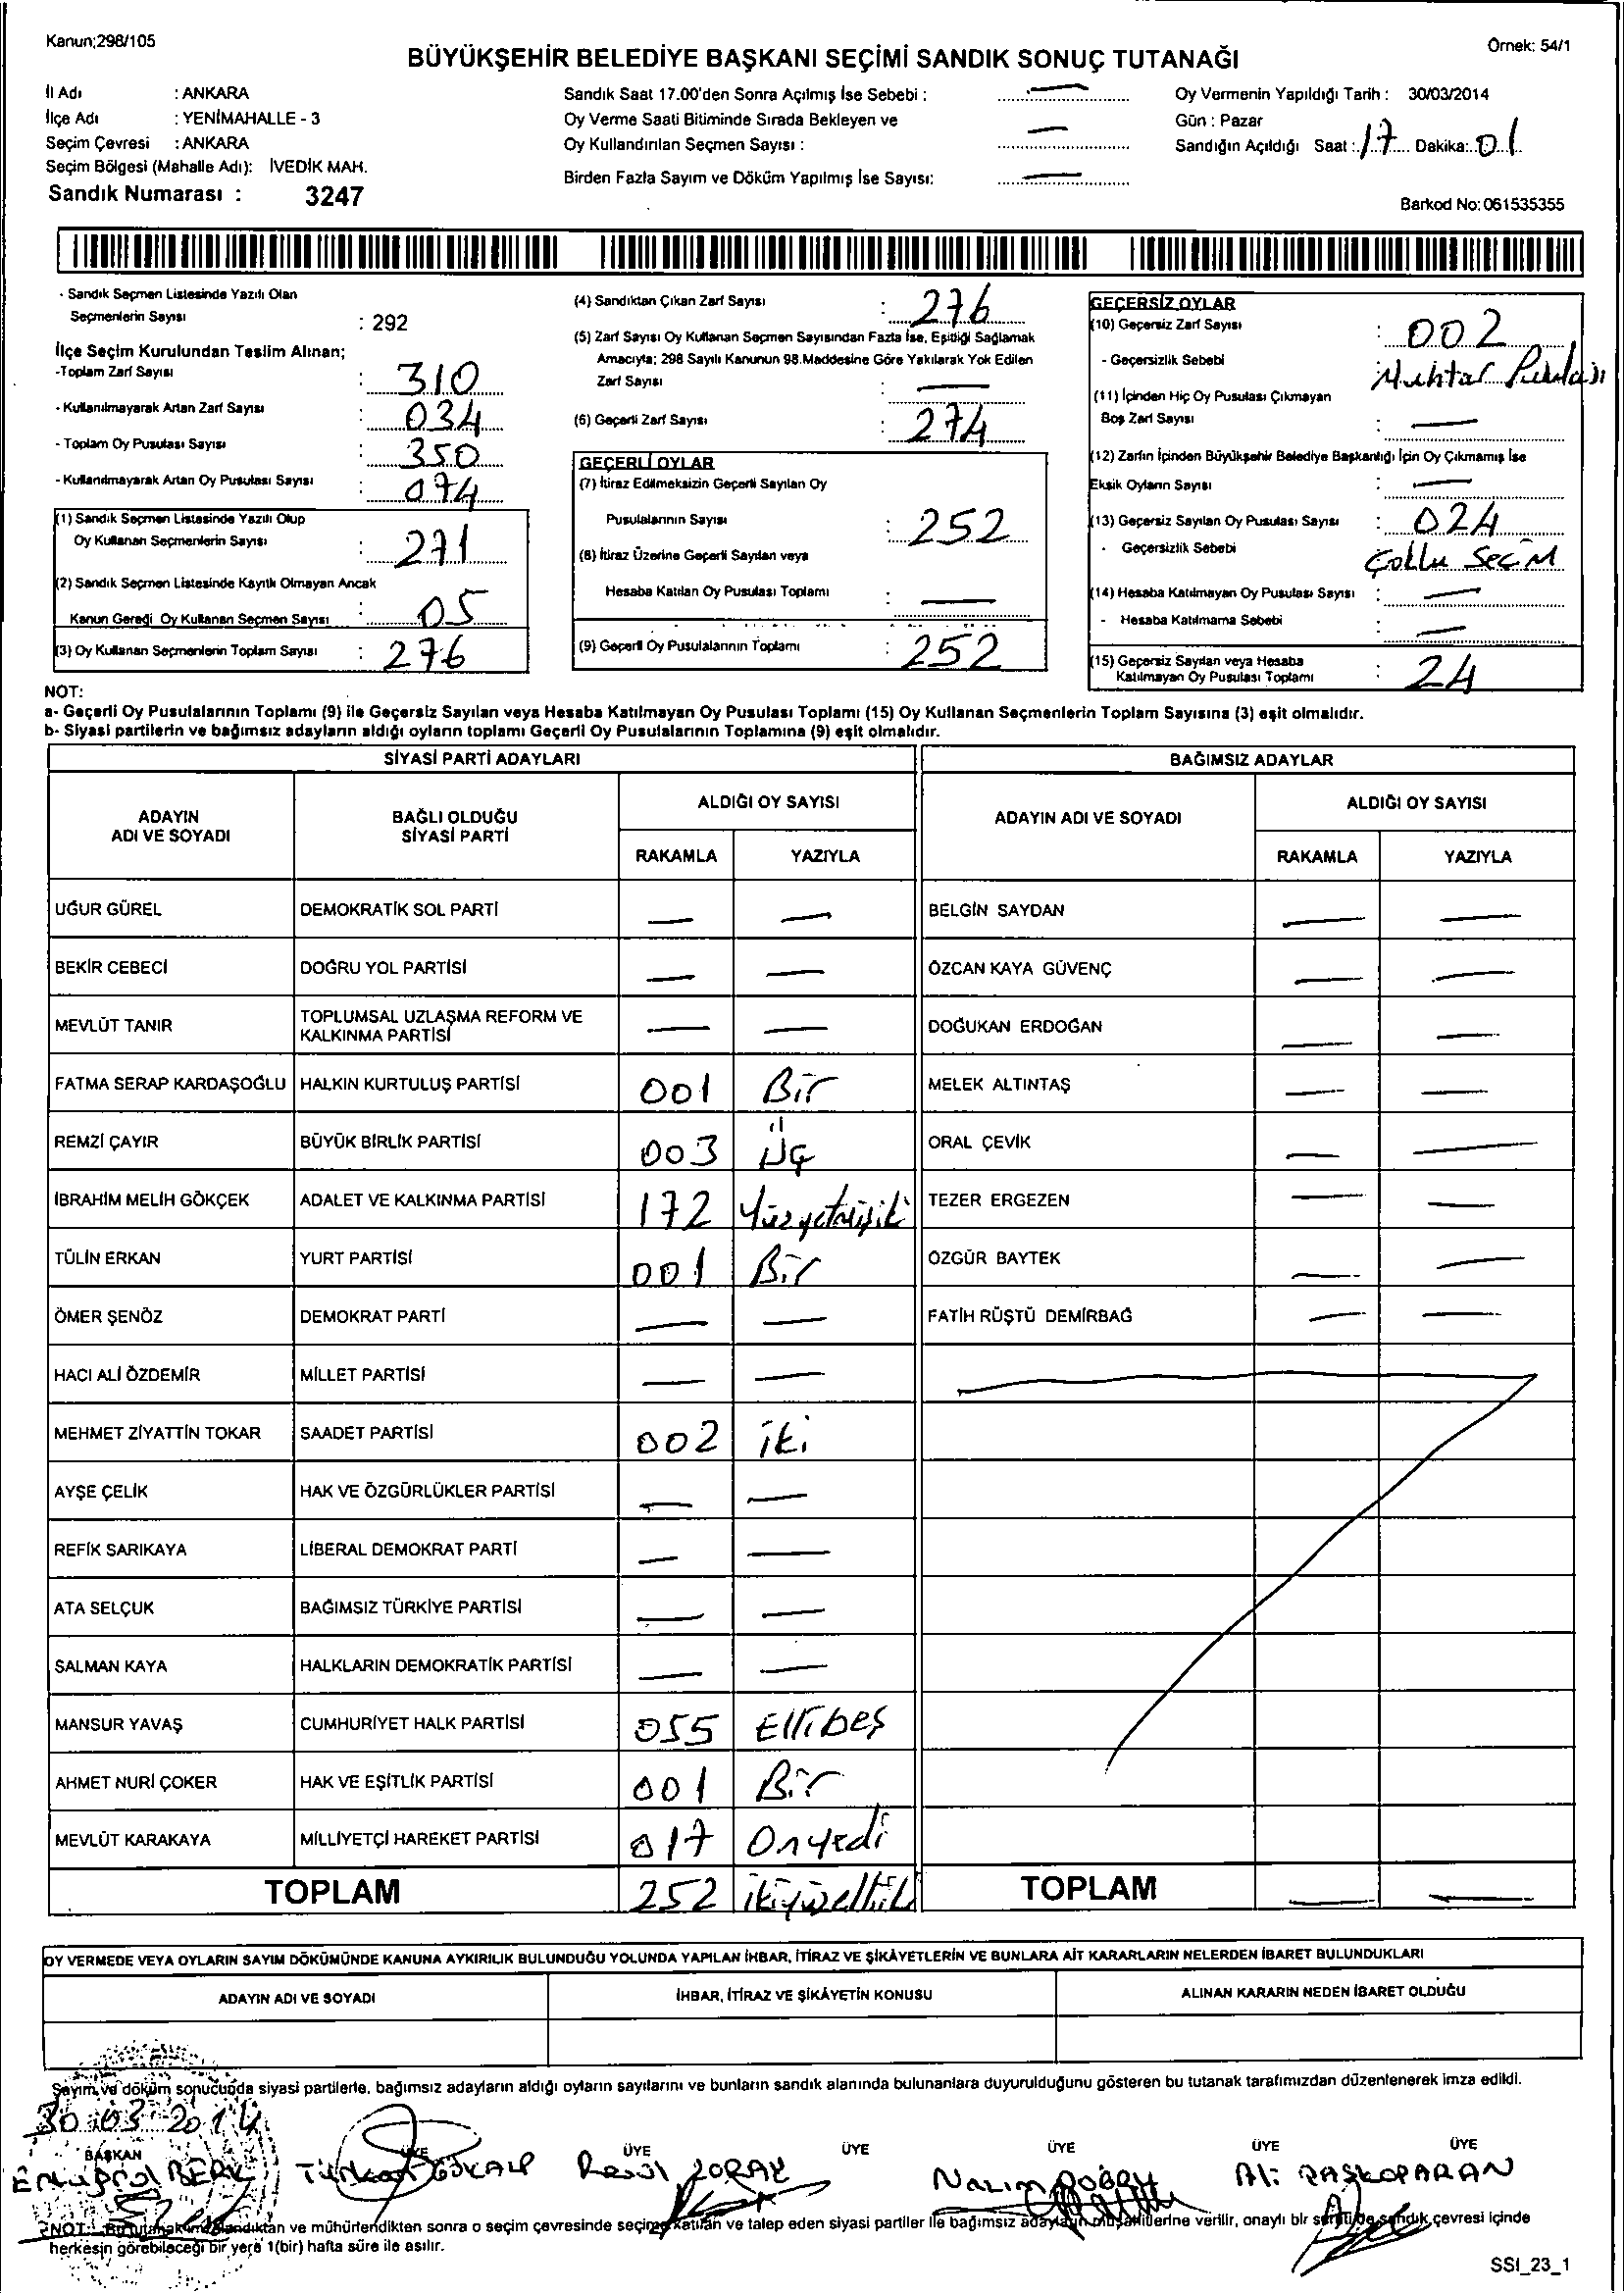 Kanun;298/105
Örnek: 54/1
BÜYÜKŞEHİR BELEDİYE BAŞKANI SEÇİMİ SANDIK SONUÇ TUTANAĞI
İl Adı : ANKARA
İlçe Adı : YENİMAHALLE - 3
Seçim Çevresi : ANKARA
Seçim Bölgesi (Mahalle Adı): İVEDİK MAH.
Sandık Numarası : 3247
Sandık Saat 17.00'den Sonra Açılmış İse Sebebi : —
Oy Verme Saati Bitiminde Sırada Bekleyen ve
Oy Kullandırılan Seçmen Sayısı : —
Birden Fazla Sayım ve Döküm Yapılmış İse Sayısı: —
Oy Vermenin Yapıldığı Tarih : 30/03/2014
Gün : Pazar
Sandığın Açıldığı Saat : 17 Dakika: 01
Barkod No: 061535355
- Sandık Seçmen Listesinde Yazılı Olan
Seçmenlerin Sayısı : 292
İlçe Seçim Kurulundan Teslim Alınan;
-Toplam Zarf Sayısı : 310
- Kullanılmayarak Artan Zarf Sayısı : 034
- Toplam Oy Pusulası Sayısı : 350
- Kullanılmayarak Artan Oy Pusulası Sayısı : 074
(1) Sandık Seçmen Listesinde Yazılı Olup
Oy Kullanan Seçmenlerin Sayısı : 271
(2) Sandık Seçmen Listesinde Kayıtlı Olmayan Ancak
Kanun Gereği Oy Kullanan Seçmen Sayısı : 05
(3) Oy Kullanan Seçmenlerin Toplam Sayısı : 276
(4) Sandıktan Çıkan Zarf Sayısı : 276
(5) Zarf Sayısı Oy Kullanan Seçmen Sayısından Fazla İse, Eşitliği Sağlamak
Amacıyla; 298 Sayılı Kanunun 98.Maddesine Göre Yakılarak Yok Edilen
Zarf Sayısı : —
(6) Geçerli Zarf Sayısı : 274
GEÇERLİ OYLAR
(7) İtiraz Edilmeksizin Geçerli Sayılan Oy
Pusulalarının Sayısı : 252
(8) İtiraz Üzerine Geçerli Sayılan veya
Hesaba Katılan Oy Pusulası Toplamı : —
(9) Geçerli Oy Pusulalarının Toplamı : 252
GEÇERSİZ OYLAR
(10) Geçersiz Zarf Sayısı : 002
- Geçersizlik Sebebi Muhtar Pusulası
(11) İçinden Hiç Oy Pusulası Çıkmayan
Boş Zarf Sayısı : —
(12) Zarfın İçinden Büyükşehir Belediye Başkanlığı İçin Oy Çıkmamış İse
Eksik Oyların Sayısı : —
(13) Geçersiz Sayılan Oy Pusulası Sayısı : 024
- Geçersizlik Sebebi Çoklu Seçim
(14) Hesaba Katılmayan Oy Pusulası Sayısı : —
- Hesaba Katılmama Sebebi : —
(15) Geçersiz Sayılan veya Hesaba
Katılmayan Oy Pusulası Toplamı : 24
NOT:
a- Geçerli Oy Pusulalarının Toplamı (9) ile Geçersiz Sayılan veya Hesaba Katılmayan Oy Pusulası Toplamı (15) Oy Kullanan Seçmenlerin Toplam Sayısına (3) eşit olmalıdır.
b- Siyasi partilerin ve bağımsız adayların aldığı oyların toplamı Geçerli Oy Pusulalarının Toplamına (9) eşit olmalıdır.
SİYASİ PARTİ ADAYLARI
BAĞIMSIZ ADAYLAR
ADAYIN ADI VE SOYADI
BAĞLI OLDUĞU SİYASİ PARTİ
ALDIĞI OY SAYISI
RAKAMLA YAZIYLA
ADAYIN ADI VE SOYADI
ALDIĞI OY SAYISI
RAKAMLA YAZIYLA
UĞUR GÜREL DEMOKRATİK SOL PARTİ — — BELGİN SAYDAN — —
BEKİR CEBECİ DOĞRU YOL PARTİSİ — — ÖZCAN KAYA GÜVENÇ — —
MEVLÜT TANIR TOPLUMSAL UZLAŞMA REFORM VE KALKINMA PARTİSİ — — DOĞUKAN ERDOĞAN — —
FATMA SERAP KARDAŞOĞLU HALKIN KURTULUŞ PARTİSİ 001 Bir MELEK ALTINTAŞ — —
REMZİ ÇAYIR BÜYÜK BİRLİK PARTİSİ 003 Üç ORAL ÇEVİK — —
İBRAHİM MELİH GÖKÇEK ADALET VE KALKINMA PARTİSİ 172 Yüzyetmişiki TEZER ERGEZEN — —
TÜLİN ERKAN YURT PARTİSİ 001 Bir ÖZGÜR BAYTEK — —
ÖMER ŞENÖZ DEMOKRAT PARTİ — — FATİH RÜŞTÜ DEMİRBAĞ — —
HACI ALİ ÖZDEMİR MİLLET PARTİSİ — —
MEHMET ZİYATTİN TOKAR SAADET PARTİSİ 002 iki
AYŞE ÇELİK HAK VE ÖZGÜRLÜKLER PARTİSİ — —
REFİK SARIKAYA LİBERAL DEMOKRAT PARTİ — —
ATA SELÇUK BAĞIMSIZ TÜRKİYE PARTİSİ — —
SALMAN KAYA HALKLARIN DEMOKRATİK PARTİSİ — —
MANSUR YAVAŞ CUMHURİYET HALK PARTİSİ 055 Ellibeş
AHMET NURİ ÇOKER HAK VE EŞİTLİK PARTİSİ 001 Bir
MEVLÜT KARAKAYA MİLLİYETÇİ HAREKET PARTİSİ 017 Onyedi
TOPLAM 252 ikiyüzelliiki TOPLAM — —
OY VERMEDE VEYA OYLARIN SAYIM DÖKÜMÜNDE KANUNA AYKIRILIK BULUNDUĞU YOLUNDA YAPILAN İHBAR, İTİRAZ VE ŞİKÂYETLERİN VE BUNLARA AİT KARARLARIN NELERDEN İBARET BULUNDUKLARI
ADAYIN ADI VE SOYADI İHBAR, İTİRAZ VE ŞİKÂYETİN KONUSU ALINAN KARARIN NEDEN İBARET OLDUĞU
Sayım ve döküm sonucunda siyasi partilerle, bağımsız adayların aldığı oyların sayılarını ve bunların sandık alanında bulunanlara duyurulduğunu gösteren bu tutanak tarafımızdan düzenlenerek imza edildi.
30.03.2014
BAŞKAN ÜYE ÜYE ÜYE ÜYE ÜYE ÜYE
Ertuğrul BERK Türkan GÖKALP Resül ZORAY Nazım DOĞRU Ali TAŞKOPARAN
NOT: Bu tutanak imzalandıktan ve mühürlendikten sonra o seçim çevresinde seçime katılan ve talep eden siyasi partiler ile bağımsız adayların müşahitlerine verilir, onaylı bir sureti de sandık çevresi içinde
herkesin görebileceği bir yere 1(bir) hafta süre ile asılır.
SSI_23_1